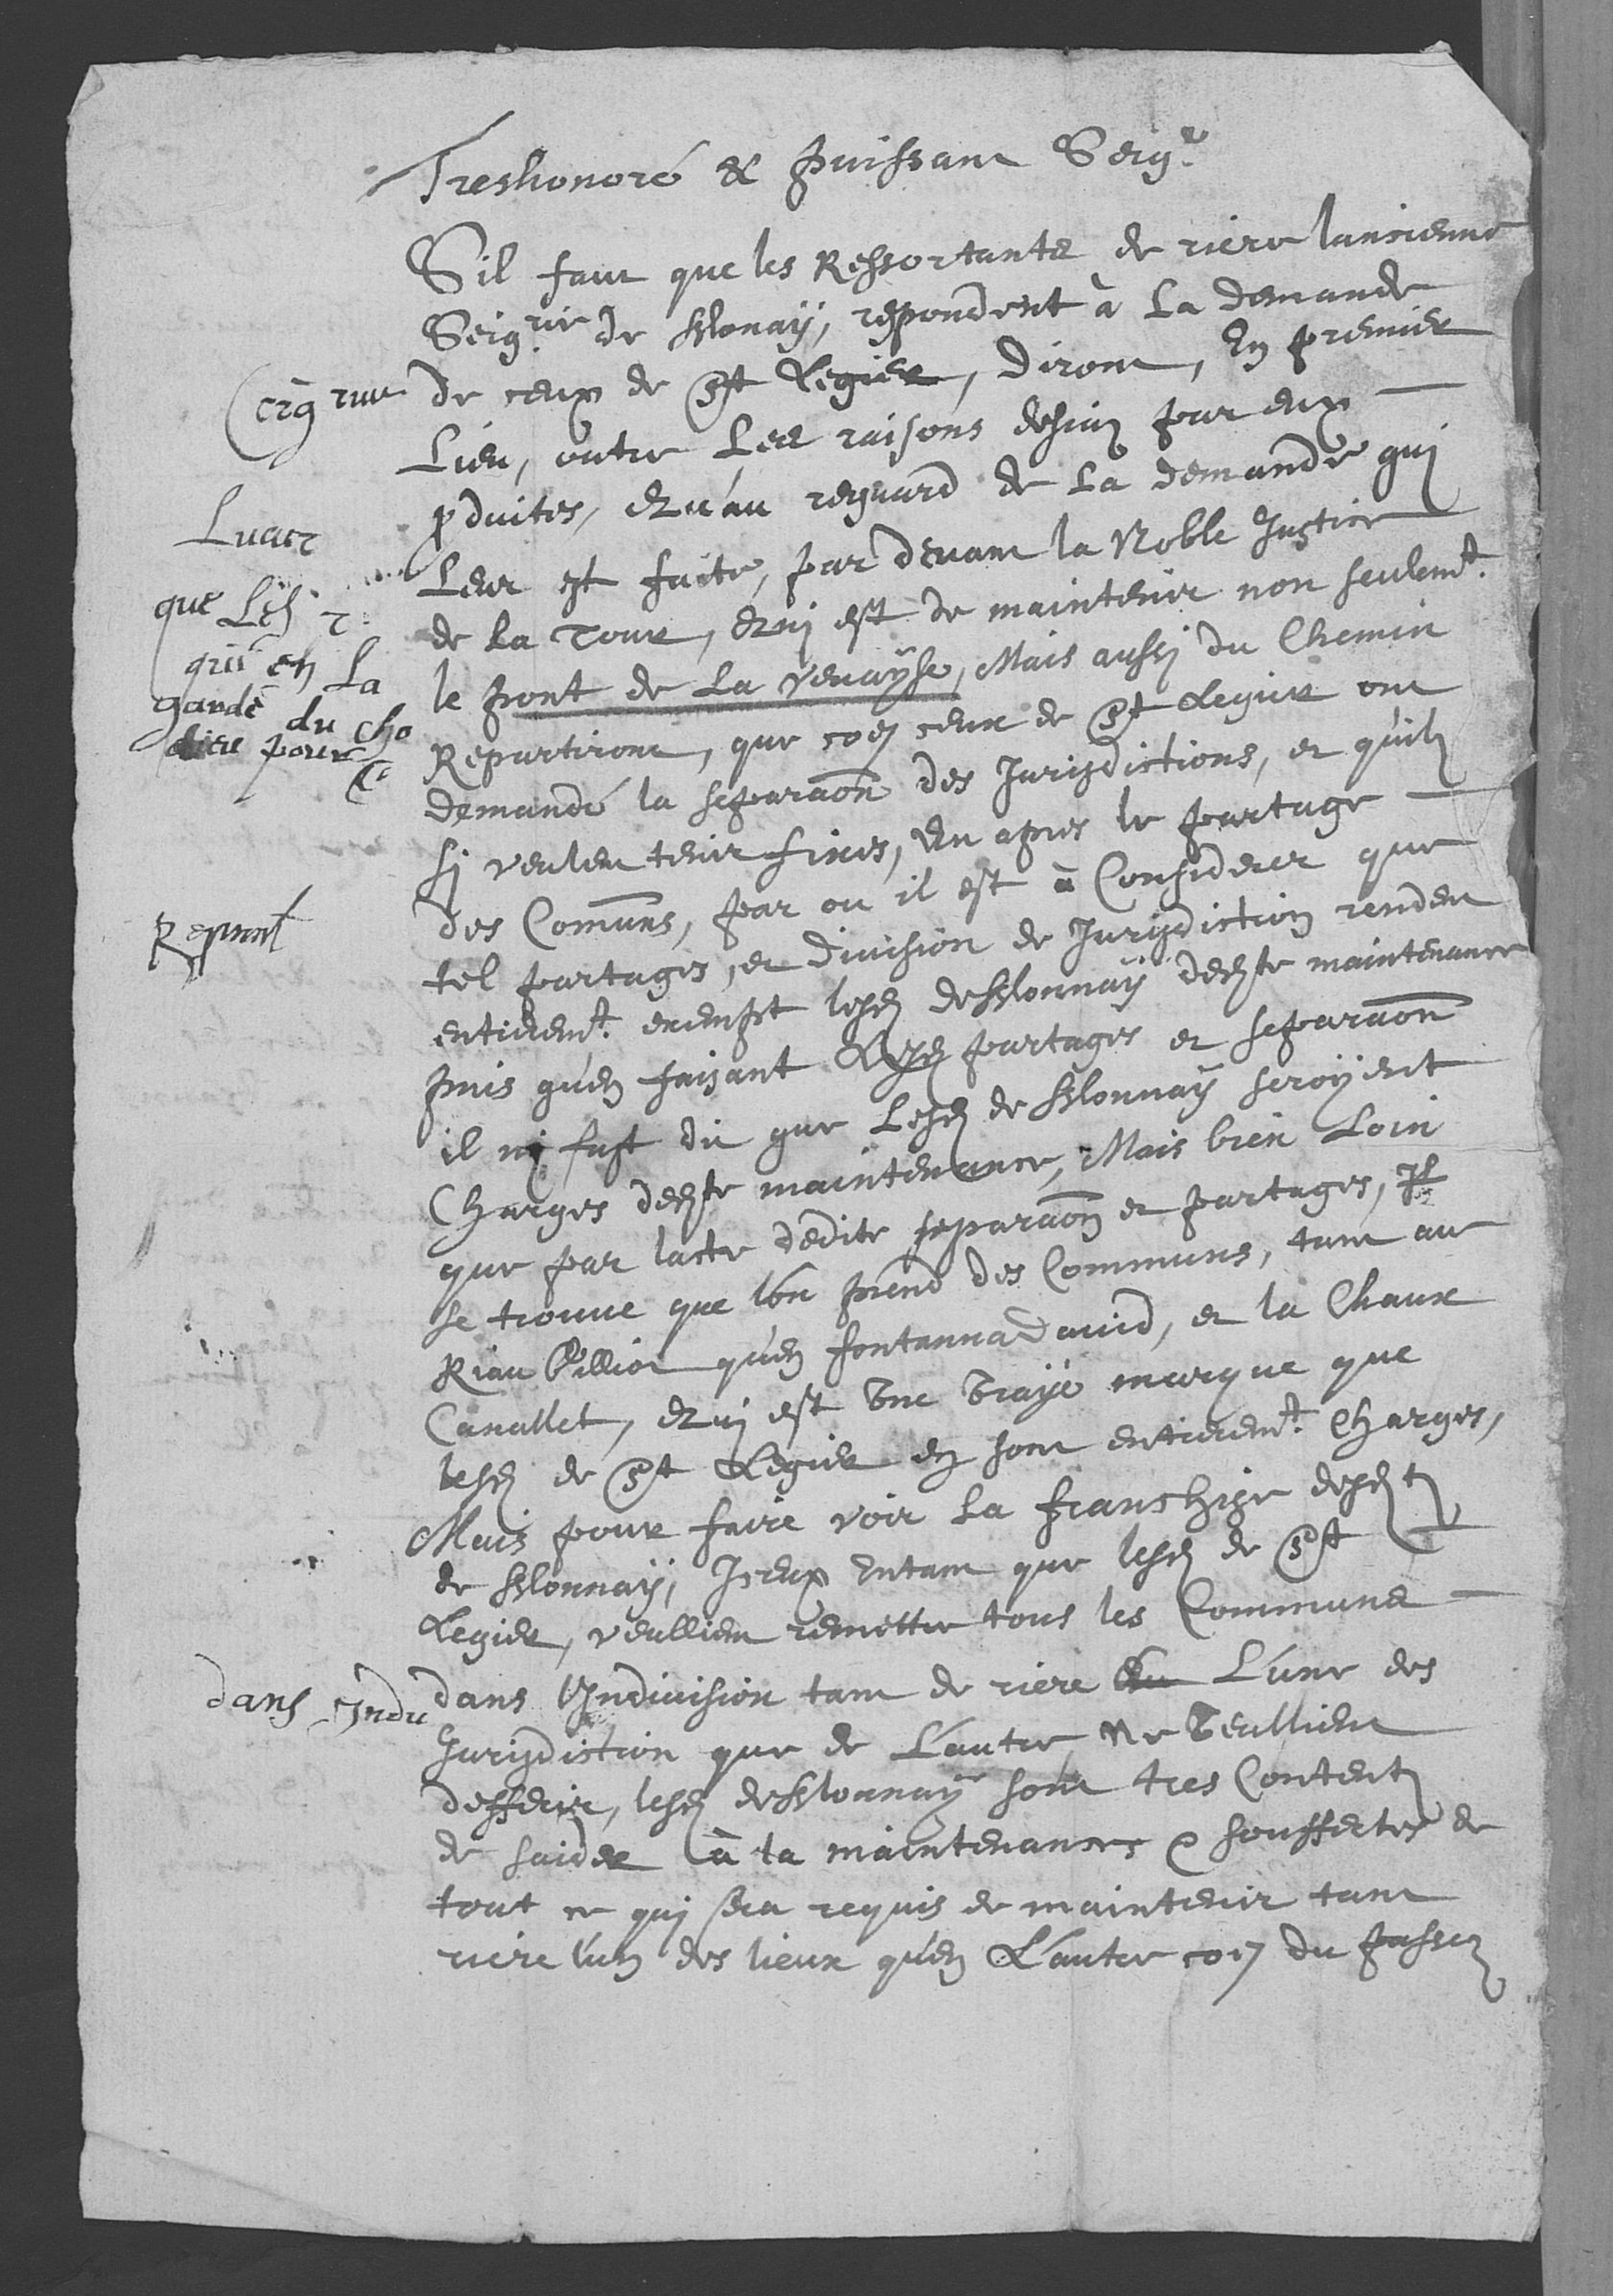 Treshonoré & puissant Seigr
Sil faut que les Ressortants de riere lancienne
Seigrie de Blonaÿ, respondent à La demande
de ceux de St Legier, diront, En premier
Lieu, outre Les raisons desia par eux
pduites, qu'au reguard de La demande qui
Leur est faite, par devant la Noble Justice
de La Tour, qui est de maintenir non seulemt
le pont de La Veuaÿse, Mais aussi du Chemin
Repartiront, que coe ceux de St Legier ont
demandé la separaon des Jurisdictions, et quils
sj veulent tenir fixes, Un apres le partage
des Comuns, par ou il est à Considerer que
tel partages, et division de Jurisdiction rendent
entieremt exempt lesd de Blonnaÿ deste maintenance
puis quen faisant partages et separaon
il nj fust dit que Lesd de Blonnaÿ seroÿent
Charges deste maintenance, Mais bien Loin
que par lacte dedite separaon et partages, Il
se trouve que lon prend des Communs, tant au
Riau Pilliot quen fontanna Dauid, et la Chaux
Canallet, qui est vne vraÿe marque que
lesd de St Legier en sont entieremt Charges,
Mais pour faire voir La franchise desd
de Blonnaÿ, Iceux entant que lesd de St
Legier, veullient remettre tous les Communs
dans lIndivision tant de riere L'une des
Jurisdiction que de L'autre, Ne veullient
desserir, lesd de Blonnaÿ sont tres Contents
de saider à la maintenances & soufferte de
tout ce qui sera requis de maintenir tant
riere l'un des lieux quen L'autre coe du passez
que Lesd
qui en La
du cho
pour
dans Indu